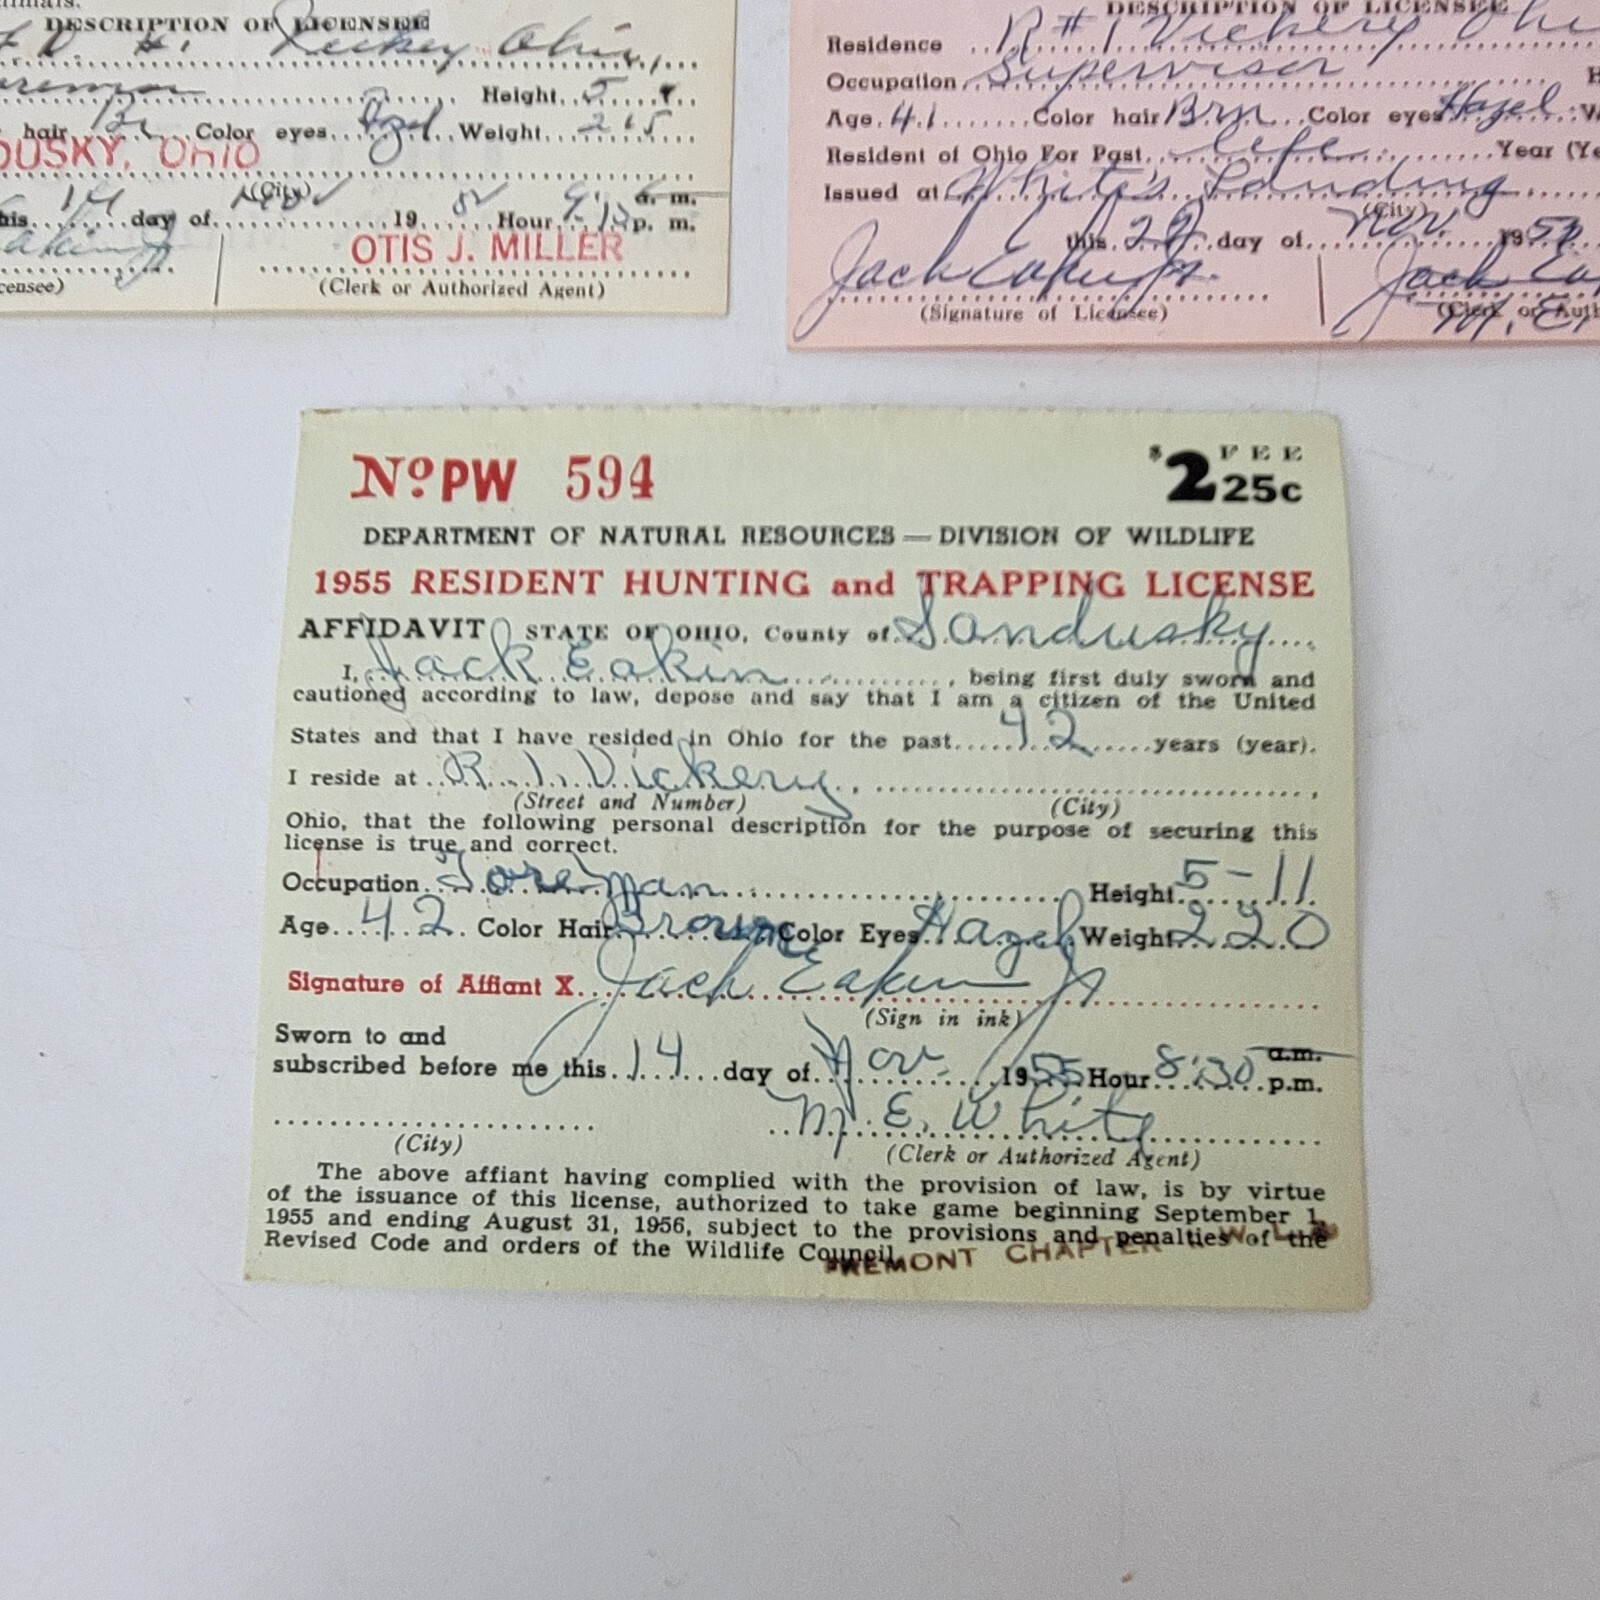 DESCRIPTION OF LICENSEE
Ohio
Height 5
hair Br Color eyes Hzl Weight 215
DUSKY, OHIO
(City)
this 14 day of Nov 19 52 Hour 9:15 a. m. p. m.
OTIS J. MILLER
(Clerk or Authorized Agent)
DESCRIPTION OF LICENSEE
Residence R#1 Vickery Ohi
Occupation Supervisor H
Age 41 Color hair Brn Color eyes Hazel W
Resident of Ohio For Past life Year (Ye
Issued at White's Landing
(City)
this day of Nov. 195
Jack Eakin Jr. Jack Ea
(Signature of Licensee) (Clerk or Auth
M. E.
No PW 594
$2 25c FEE
DEPARTMENT OF NATURAL RESOURCES — DIVISION OF WILDLIFE
1955 RESIDENT HUNTING and TRAPPING LICENSE
AFFIDAVIT STATE OF OHIO, County of Sandusky
I, Jack Eakin, being first duly sworn and
cautioned according to law, depose and say that I am a citizen of the United
States and that I have resided in Ohio for the past 42 years (year).
I reside at R. 1. Vickery,
(Street and Number) (City)
Ohio, that the following personal description for the purpose of securing this
license is true and correct.
Occupation Foreman Height 5-11
Age 42 Color Hair Brown Color Eyes Hazel Weight 220
Signature of Affiant X Jack Eakin Jr
(Sign in ink)
Sworn to and
subscribed before me this 14 day of Nov. 1955 Hour 8:30 a.m. p.m.
M. E. White
(City) (Clerk or Authorized Agent)
The above affiant having complied with the provision of law, is by virtue
of the issuance of this license, authorized to take game beginning September 1,
1955 and ending August 31, 1956, subject to the provisions and penalties of the
Revised Code and orders of the Wildlife Council.
FREMONT CHAPTER